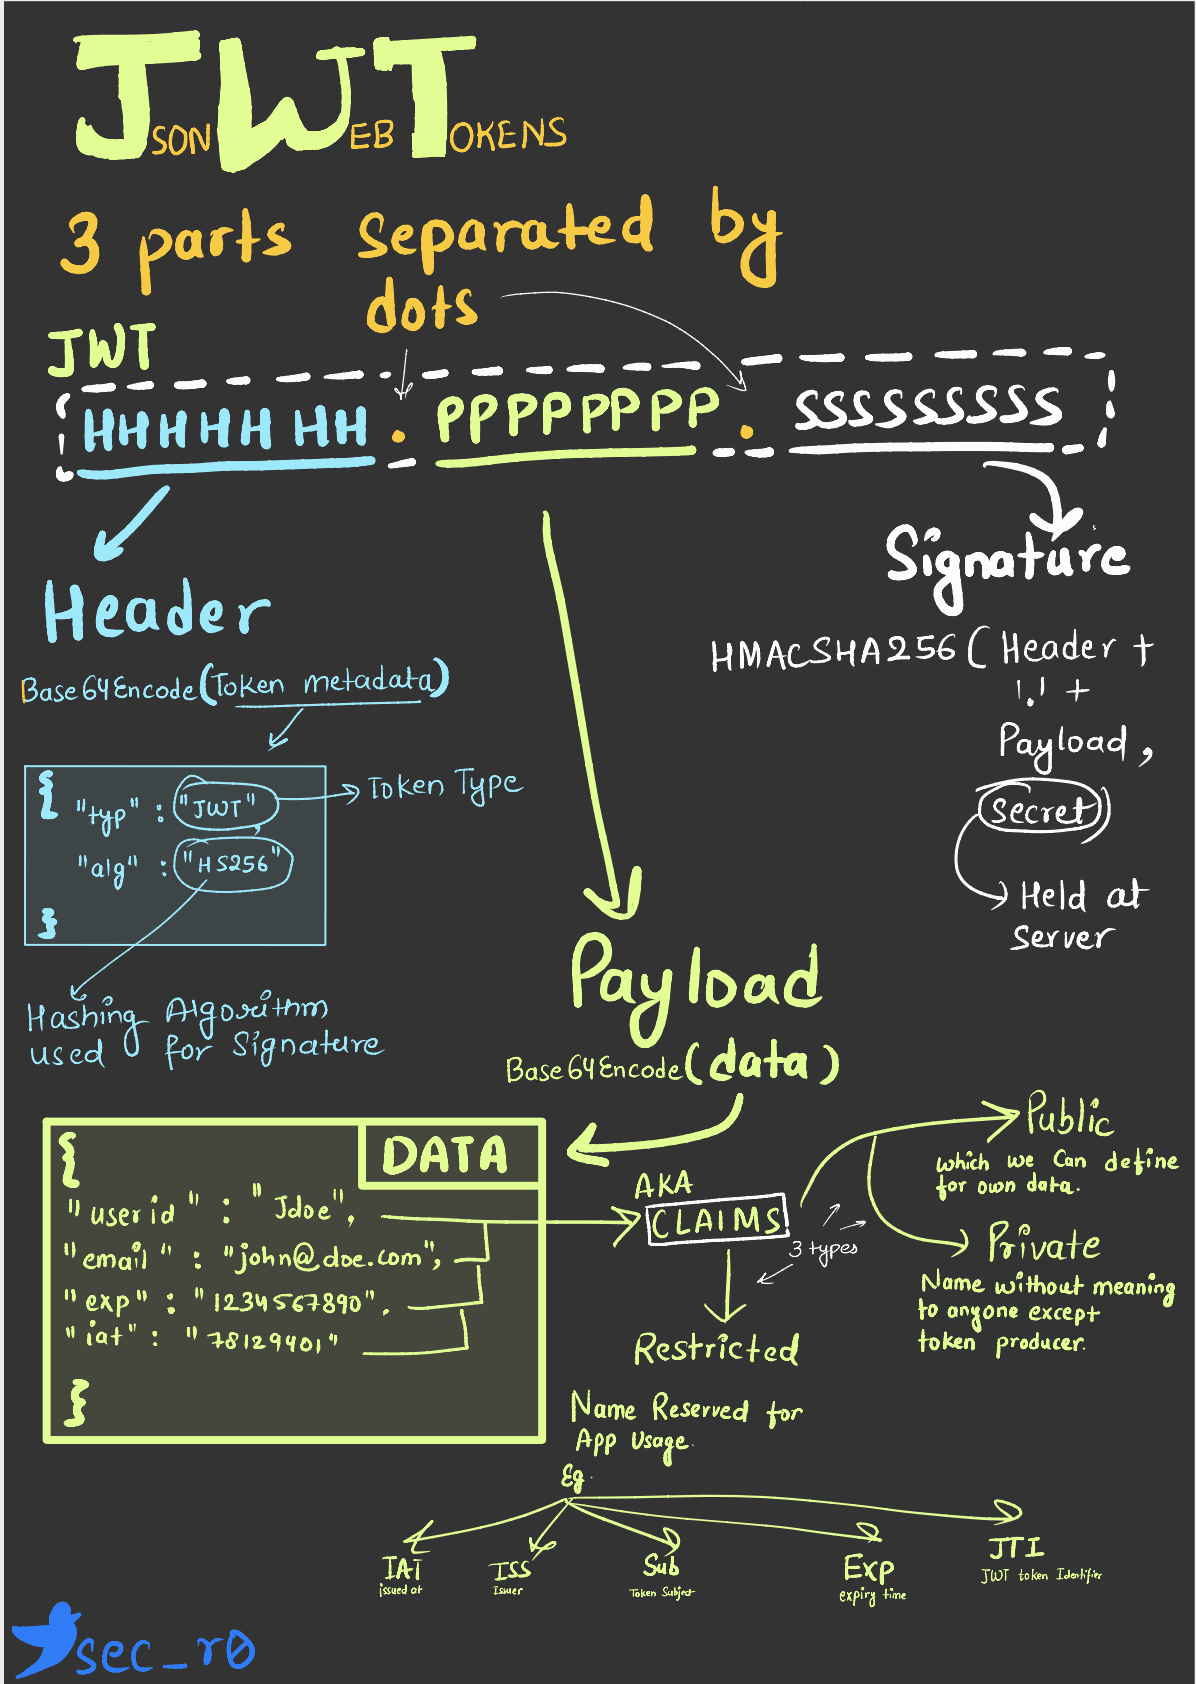 JSON WEB TOKENS
3 parts separated by
dots
JWT
HHHHHHH . PPPPPPPP . SSSSSSSSS
Header
Base64Encode(Token metadata)
{
"typ" : "JWT"
Token Type
"alg" : "HS256"
}
Hashing Algorithm
used for Signature
Signature
HMACSHA256(Header +
'.' +
Payload,
secret)
Held at
Server
Payload
Base64Encode(data)
DATA
{
"userid" : "Jdoe",
"email" : "john@doe.com",
"exp" : "1234567890".
"iat" : "78129401"
}
AKA
CLAIMS
3 types
Public
which we Can define
for own data.
Private
Name without meaning
to anyone except
token producer.
Restricted
Name Reserved for
App Usage.
Eg.
IAT
issued at
ISS
Issuer
Sub
Token Subject
Exp
expiry time
JTI
JWT token Identifier
sec_r0